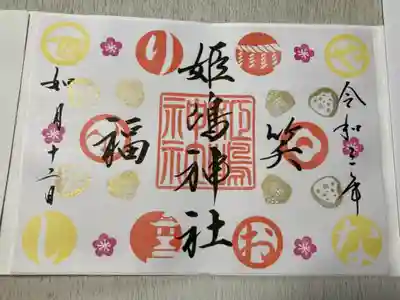 や
令和三年
な
笑
お
姫嶋神社
姫嶋
神社
り
福
如月十二日
し